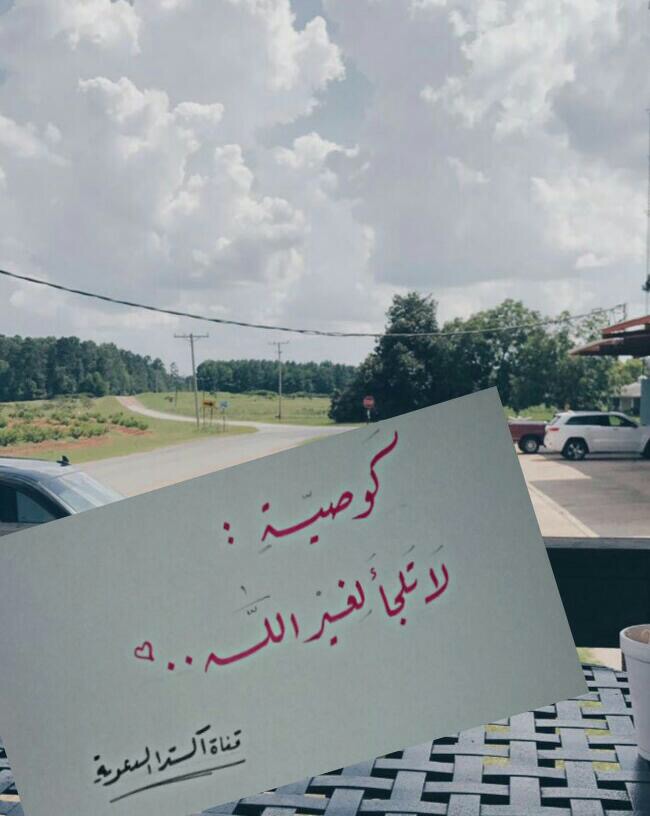 كَوصيّـة :
لَا تَلجأ لغيْر اللّـه..♡
قناة اكسترا السعودية